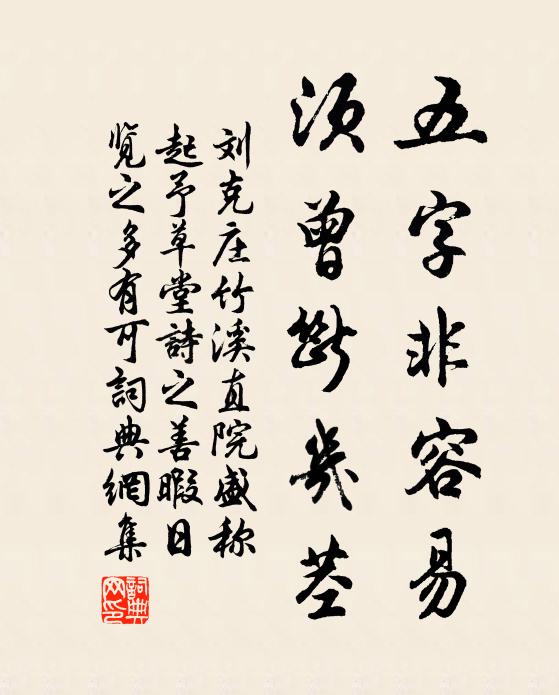 五字非容易
须曾断几茎
刘克庄竹溪直院盛称
起予草堂詩之善暇日
览之多有可詞典網集
詞典网印